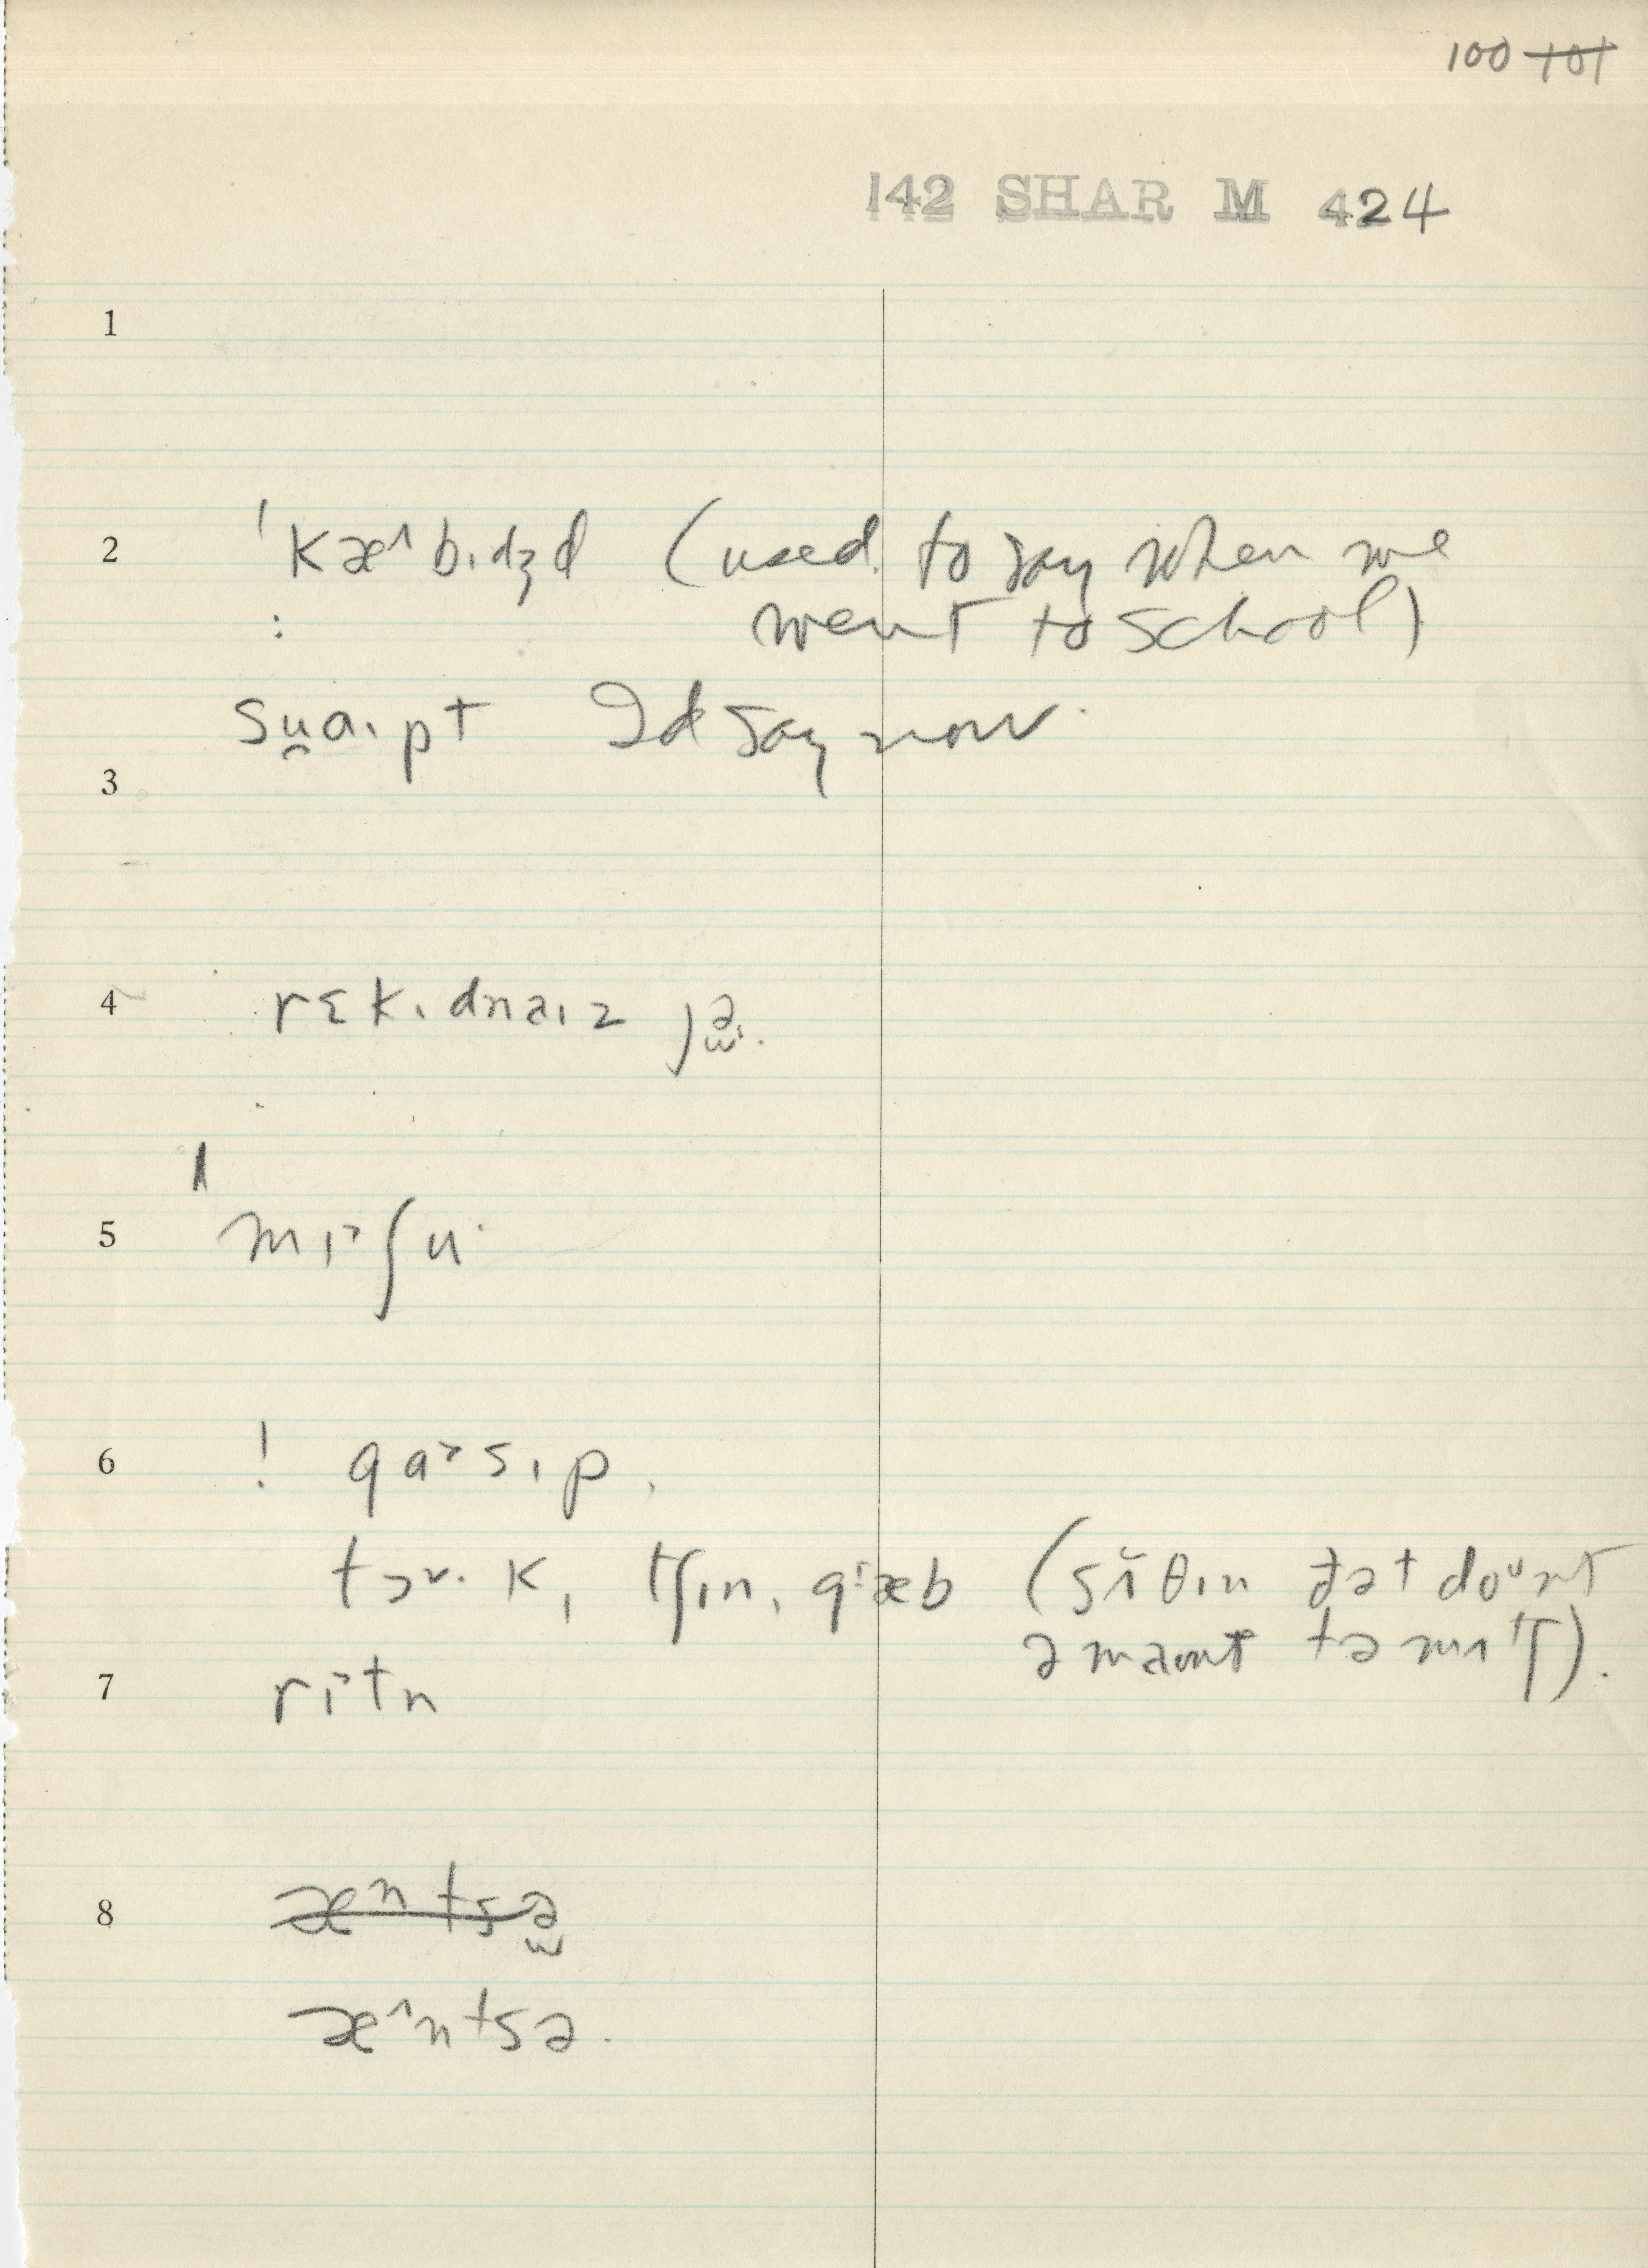 100 ~~101~~
142 SHAR M 424
1
2 ˈkæ˄bɪdʒd (used to say when we
: went to school)
su̯aɪpt I'd say now.
3
4 rɛkɪdnaɪz jə̯.
5 ˈmɪ˃ʃu·
6 ! ga˃sɪp,
tɔ˅·kɪ tʃɪn, gæb (sʌ̌θɪn ðət doᵘnt
əmaunt tə mʌtʃ).
7 rɪ˃tn
8 ~~æntsə̯~~
æ˄ntsə.